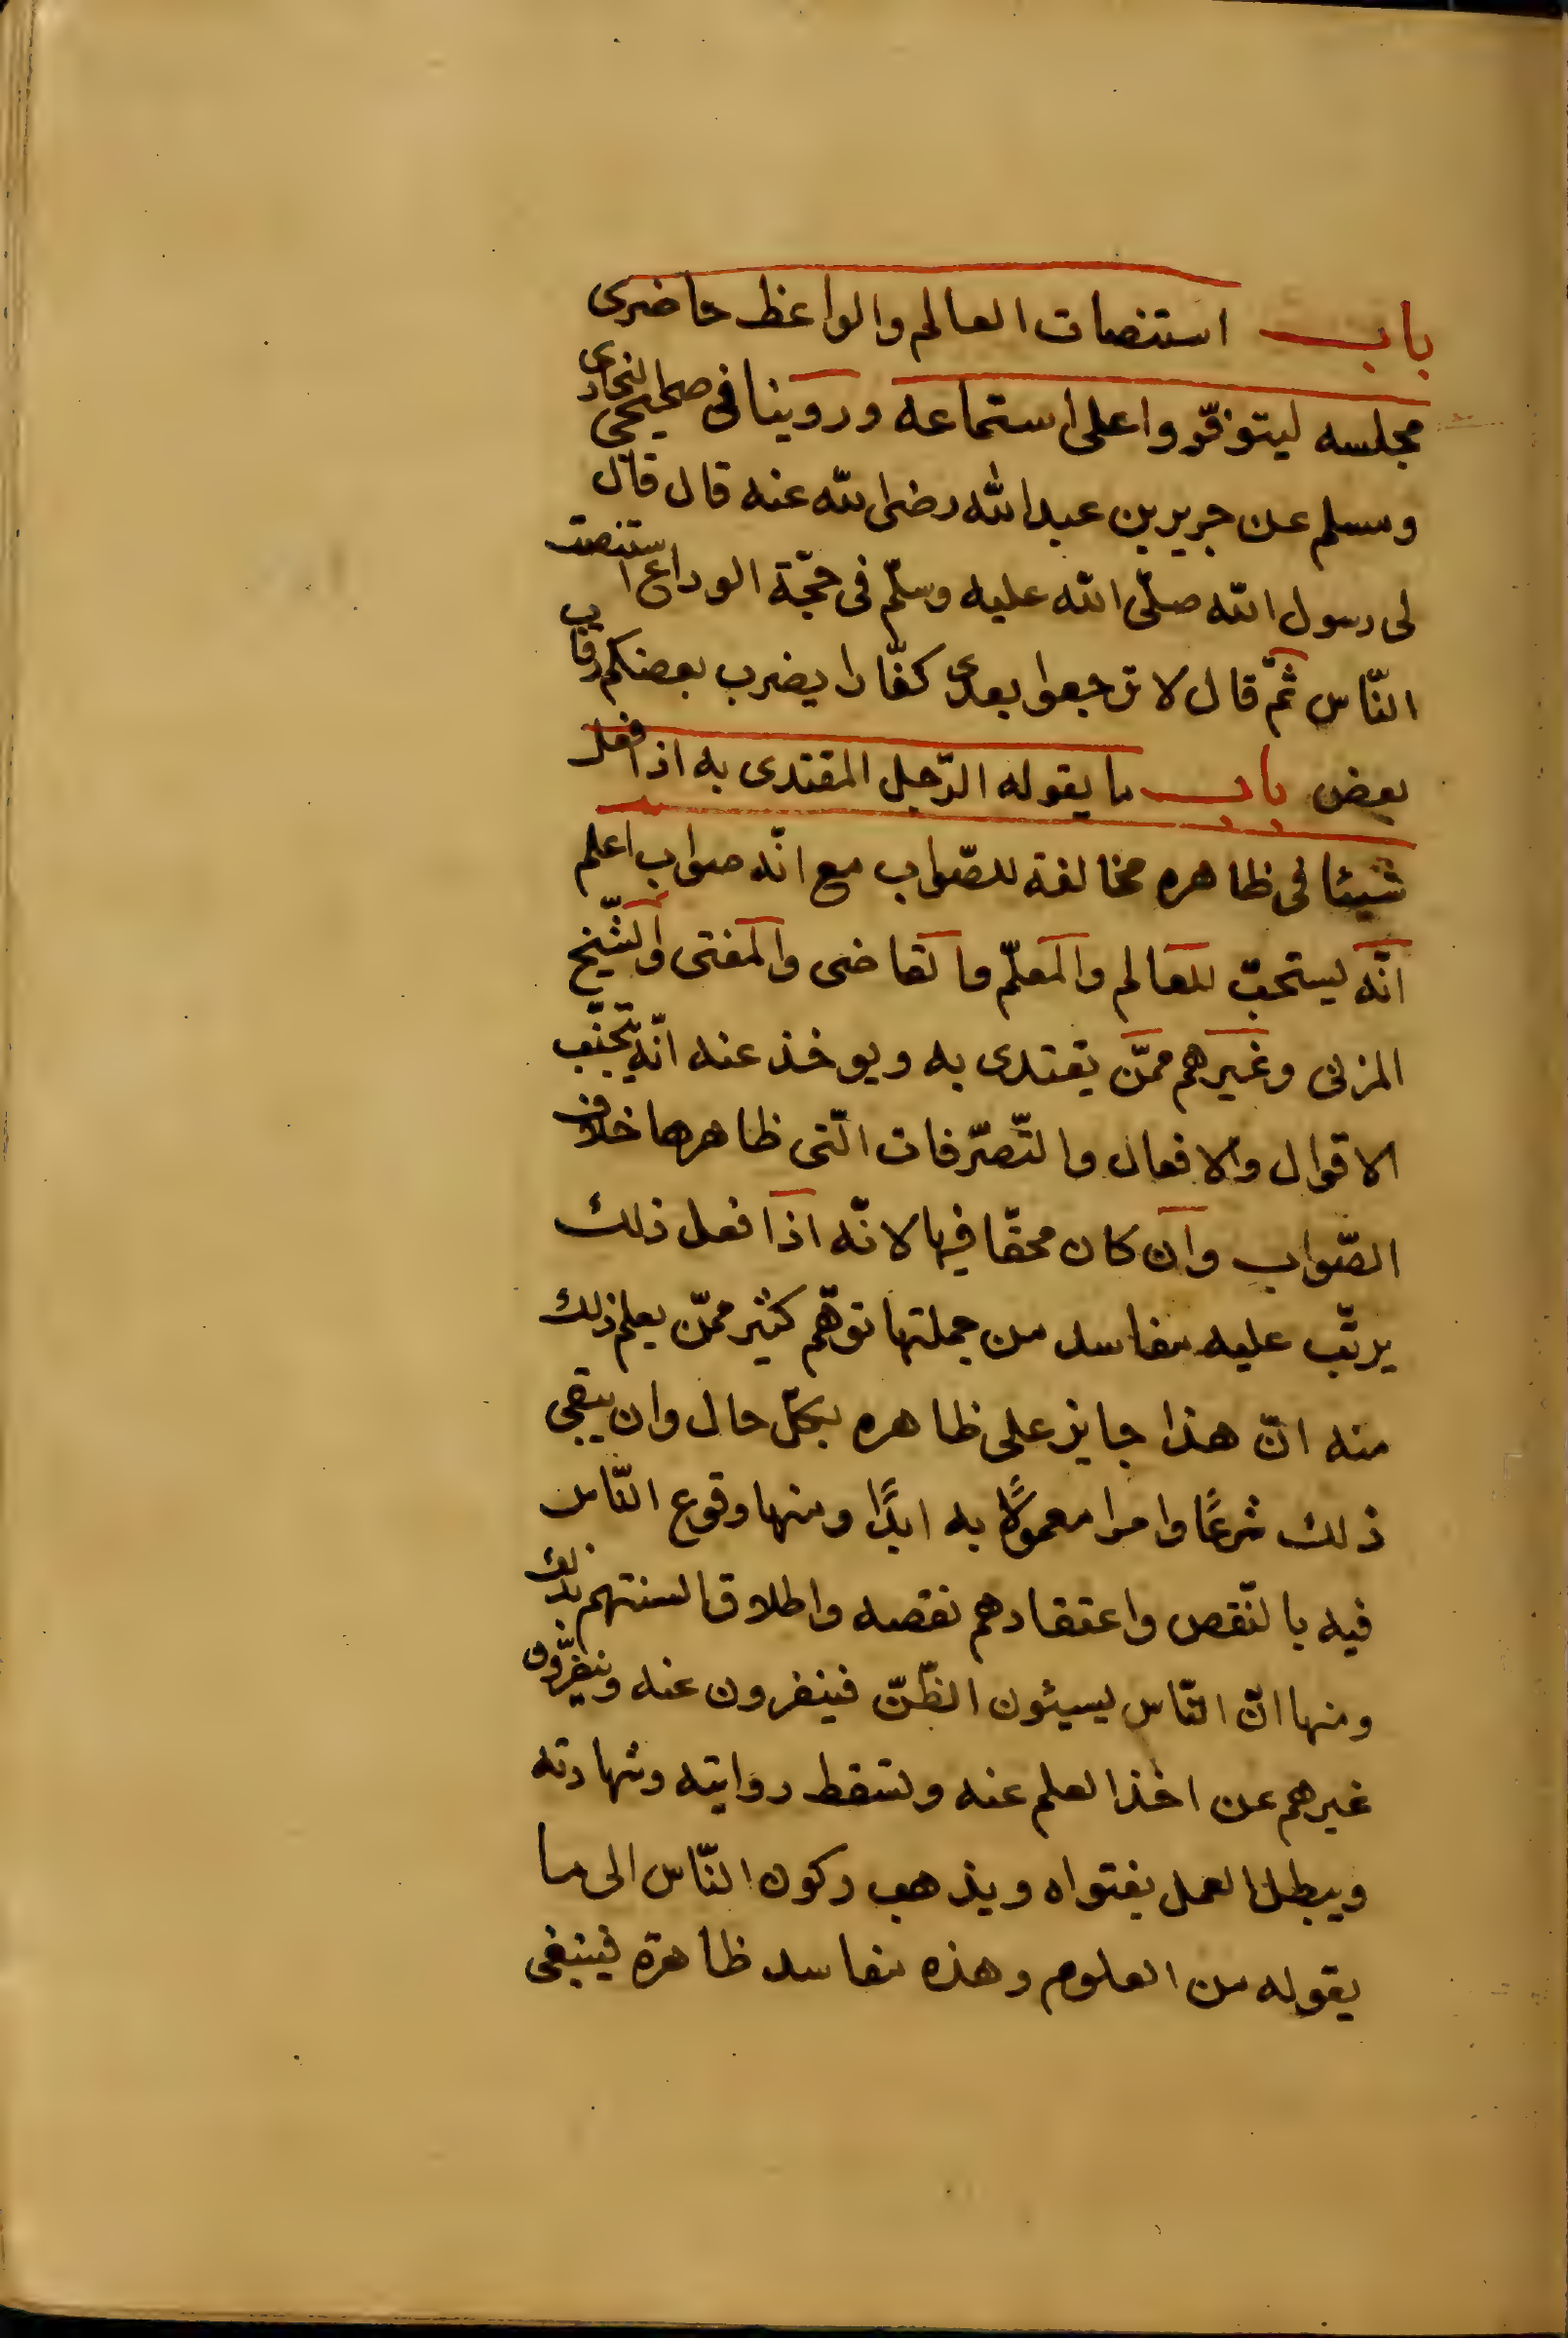 باب استنصات العالم والواعظ حاضرى
مجلسه ليتوفّروا على استماعه وروينا فى صحيحى البخارى
ومسلم عن جرير بن عبدالله رضى الله عنه قال قال
لى رسول الله صلّى الله عليه وسلّم فى حجّة الوداع استنصت
النّاس ثمّ قال لا ترجعوا بعدى كفّارا يضرب بعضكم رقاب
بعض باب ما يقوله الرّجل المقتدى به اذا فعل
شيئا فى ظاهره مخالفة للصّواب مع انّه صواب اعلم
انّه يستحبّ للعالم والمعلّم والقاضى والمفتى والشّيخ
المزنى وغيرهم ممّن يقتدى به ويوخذ عنه انّه يتجنّب
الاقوال والافعال والتّصرّفات الّتى ظاهرها خلاف
الصّواب وان كان محقّا فيها لانّه اذا فعل ذلك
يرتّب عليه مفاسد من جملتها توهّم كثير ممّن يعلم ذلك
منه انّ هذا جايز على ظاهره بكلّ حال وان يبقى
ذلك شرعًا وامرا معمولًا به ابدًا ومنها وقوع النّاس
فيه بالنّقص واعتقادهم نقصه واطلاق السنتهم بذلك
ومنها انّ النّاس يسيئون الظّنّ فينفرون عنه وينفّرون
غيرهم عن اخذ العلم عنه وتسقط روايته وشهادته
ويبطل العمل بفتواه ويذهب ركون النّاس الى ما
يقوله من العلوم وهذه مفاسد ظاهرة فينبغى